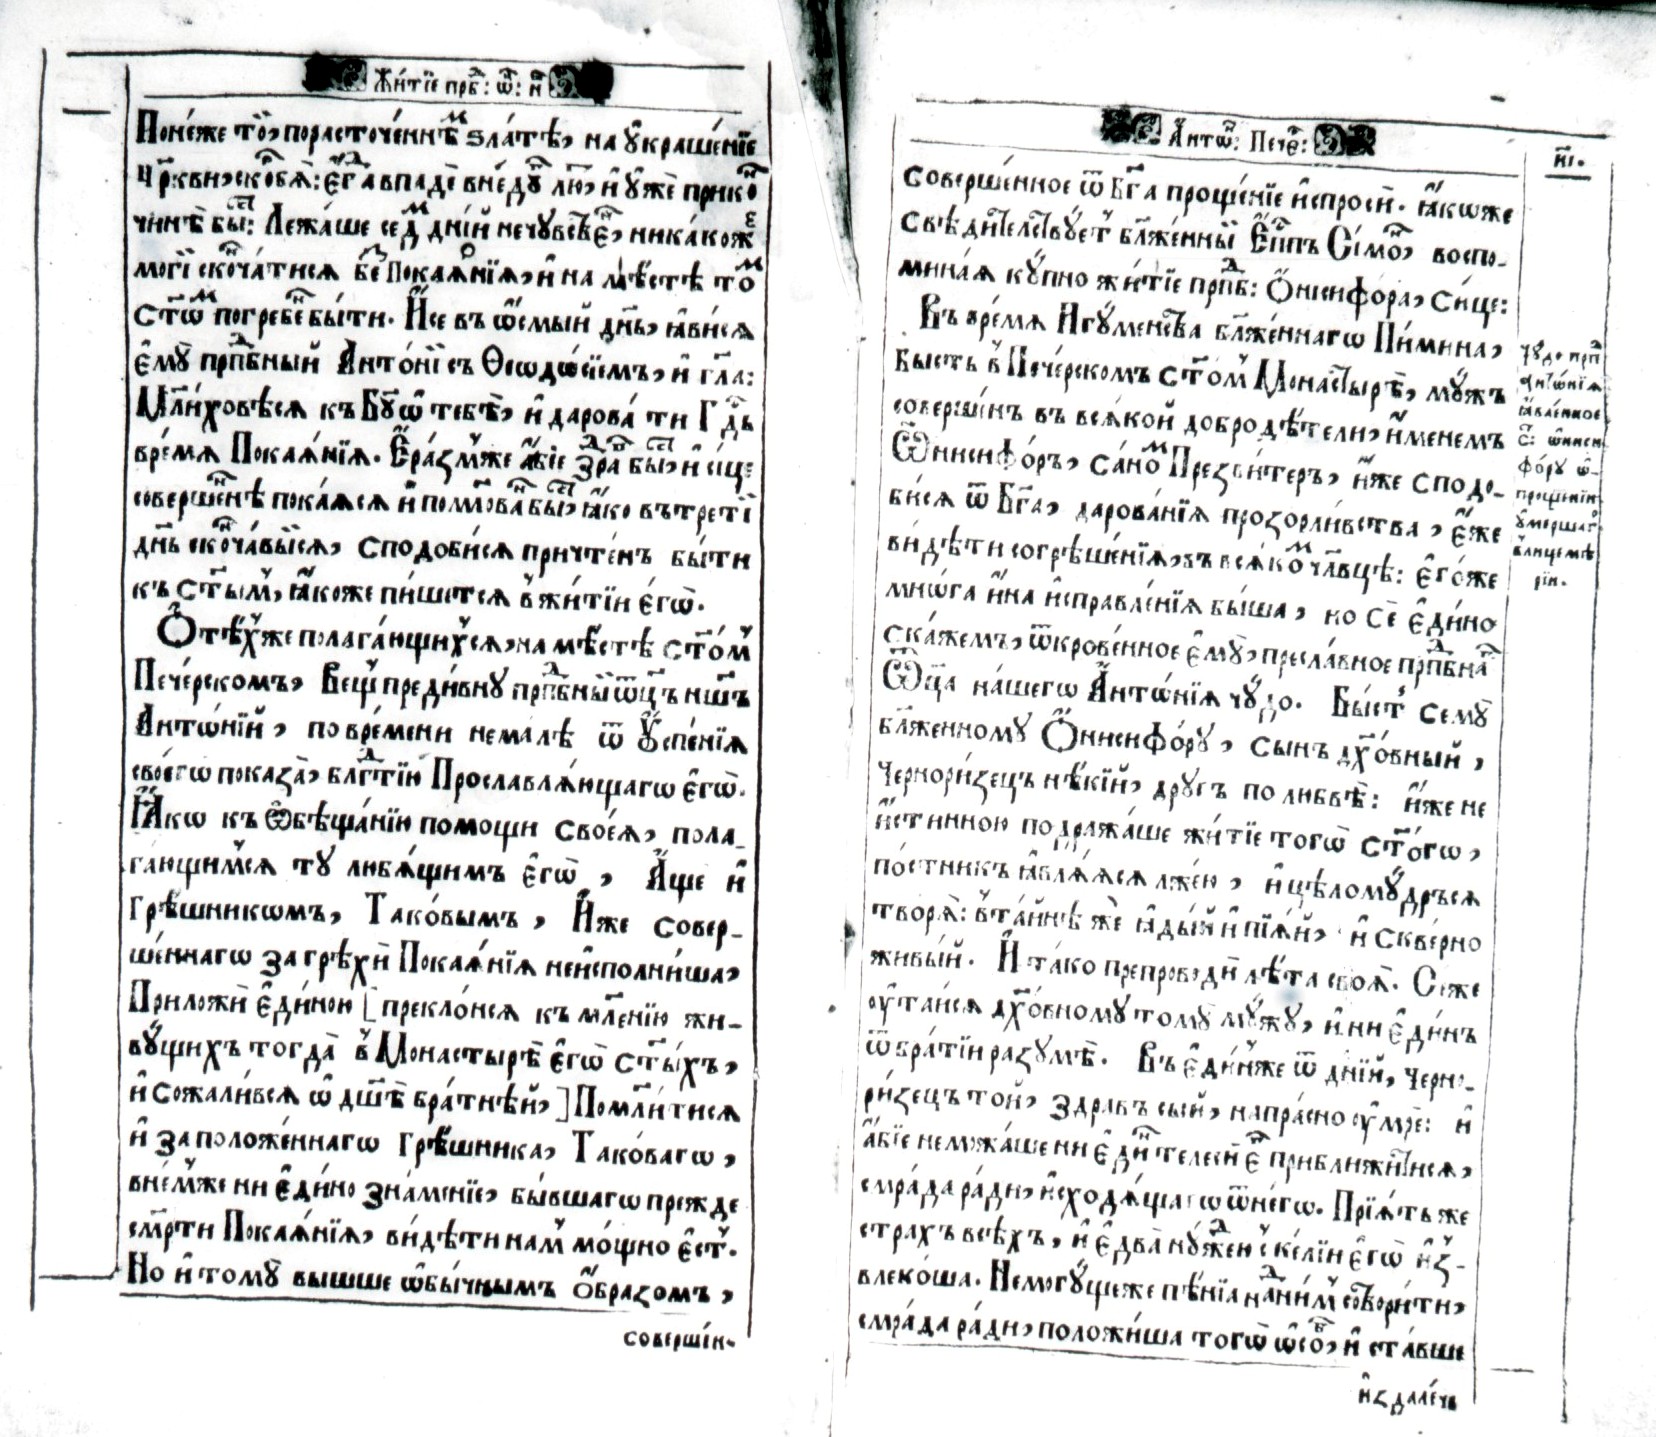 Жи́тїе прпⷣб: ѿ: н҃
Поне́же то́й, порасточе́ннѣⷨ зла́тѣ, на ᲂу҆краше́нїе
чинѣ̀ быⷭ҇: Лежа́ше се́дⷨ дні́й нечу́вствеⷩ҇, ника́кожⷷ
могі̀ скоⷩ҇ча́тисѧ беⷥ Покаѧ́нїѧ, и҆ на мѣ́стѣ тоⷨ
ст҃оⷨ погребеⷩ҇ бы́ти. И҆ се въ ѻ҆смы́й дн҃ь, ꙗ҆ви́сѧ
є҆мꙋ̀ прпⷣбный Анто́нїй съ Ѳеѡдо́сїемъ, и҆ гл҃а:
Мл҃и́ховѣсѧ къ Бг҃ꙋ ѡ҆ тебѣ̀, и҆ дарова́ ти Гдⷭ҇ь
вре́мѧ Покаѧ́нїѧ. Є҆ра́змꙋже а҆́бїе здраⷡ҇ быⷭ҇, и҆ си́це
соверше́ннѣ пока́ѧсѧ и҆ поми́лованⷩ҇ быⷭ҇, ꙗ҆́ко въ тре́тїй
дн҃ь скоⷩ҇ча́выйсѧ, сподо́бисѧ причте́нъ бы́ти
къ ст҃ы́мъ, ꙗ҆́коже пи́шетсѧ в̾ жи́тїи є҆гѡ̀.
Ѻ҆ тѣ́хже полага́ющихсѧ, на мѣ́стѣ ст҃о́мъ
Пече́рскомъ, Ве́щь преди́внꙋ прпⷣбный ѻ҆ц҃ъ нш҃ъ
Анто́нїй, по вре́мени нема́лѣ ѿ Оу҆спе́нїѧ
своегѡ̀ показа̀, блгⷣтїю Прославлѧ́ющагѡ є҆гѡ̀.
Ꙗ҆́кѡ къ Ѡ҆бѣща́нїю помощи своеѧ̀, пола-
га́ющимсѧ тꙋ̀ любѧ́щимъ є҆гѡ̀, А҆́ще и҆
грѣ́шникѡмъ, Тако́вымъ, И҆́же совер-
ше́ннагѡ за грѣхѝ Покаѧ́нїѧ неи҆спо́лниша,
Приложѝ є҆ди́ною [ прекло́нсѧ къ мл҃енїю жи-
вꙋ́щихъ тогда̀ в̾ Монастырѣ̀ є҆гѡ̀ ст҃ы́хъ,
и҆ сожали́всѧ ѡ҆ дш҃ѣ бра́тнѣй, ] Помл҃и́тисѧ
и҆ за положе́ннагѡ грѣ́шника, Тако́вагѡ,
в̾не́мже ни є҆ди́но зна́менїе, бы́вшагѡ пре́жде
сме́рти Покаѧ́нїѧ, ви́дѣти намъ мо́щно є҆́стъ.
Но и҆ томꙋ̀ вы́шше ѻ҆бы́чнымъ ѻ҆́бразомъ,
соверше́н-
А҆нтѡⷩ҇: Печеⷬ҇:
и҃і.
соверше́нное ѿ Бг҃а проще́нїе и҆спросѝ. ꙗ҆́кѡже
свѣдѣ́телствꙋетъ бл҃же́нный Є҆пⷭ҇пъ Сі́монⷩ҇, воспо-
мина́ѧ кꙋ́пно жи́тїе прпⷣб: Ѻ҆ниси́фора, Си́це:
Въ вре́мѧ И҆гꙋ́менства бл҃же́ннагѡ Пи́мина,
Бы́сть в̾ Пече́рскомъ ст҃о́мъ Монастырѣ̀, мꙋ́жъ
соверше́нъ въ всѧ́кой доброде́тели, и҆́менемъ
Ѻ҆ниси́фо́ръ, са́номⷨ Презви́теръ, и҆́же сподо-
би́сѧ ѿ Бг҃а, дарова́нїѧ прозорли́вства, є҆́же
ви́дѣти согрѣше́нїѧ, въ всѧ́комⷨ чл҃вцѣ: є҆го́же
мнѡ́га и҆́на и҆справле́нїѧ бы́ша, но се̑ є҆ди́но
ска́жемъ, ѿкрове́нное є҆мꙋ̀, пресла́вное прпⷣбнагⷢ҇
Ѻ҆ц҃а на́шегѡ А҆нтѡ́нїѧ чꙋ́до. Бы́стъ семꙋ̀
бл҃же́нномꙋ Ѻ҆ниси́фо́рꙋ, сы́нъ дх҃о́вный,
Черно́ри́зецъ нѣ́кїй, дрꙋ́гъ по любвѣ̀: и҆́же не
и҆́стинною подража́ше жи́тїе тогѡ̀ ст҃о́гѡ,
по́стникъ ꙗ҆влѧ́ѧсѧ лже́ю, и҆ цѣломꙋ́дръсѧ
творѧ̀: в̾та́йнѣ же ꙗ҆ды́й и҆ пїѧ́й, и҆ скве́рно
живы́й. И҆ та́ко препроводѝ лѣ́та своѧ̀. Се́же
ᲂу҆таи́сѧ дх҃о́вномꙋ томꙋ̀ мꙋ́жꙋ, и҆ ни є҆ди́нъ
ѿ бра́тїи разꙋмѣ̀. Въ є҆ди́нже ѿ днїй, черно-
ри́зецъ то́й, здра́въ сы́й, напра́сно ᲂу҆́мре: и҆
а҆́бїе не можа́ше ни є҆ди́нⷩ҇ телесѝ є҆гѡ̀ прибли́житисѧ,
смра́да ра́ди, и҆сходѧ́щагѡ ѿ негѡ̀. Прїѧ́тъ же
стра́хъ всѣ́хъ, и҆ є҆два̀ нꙋ́ждею с̾ ке́лїи є҆гѡ̀ и҆з-
влеко́ша. Немогꙋ́щеже пѣ́нїѧ надⷣ ни́мъ сотвори́ти,
смра́да ра́ди, положи́ша тогѡ̀ ѡ҆со́бⷡ҇, и҆ ста́вше
и҆здале́че
чꙋ́до прпⷣ
А҆нтѡ́нїѧ
ꙗ҆вле́нное
с҃: ѡ҆ниси
фо́рꙋ ѡ҆-
проще́нїи
ᲂу҆ме́ршагⷪ
в̾лицемѣ́
рїи.